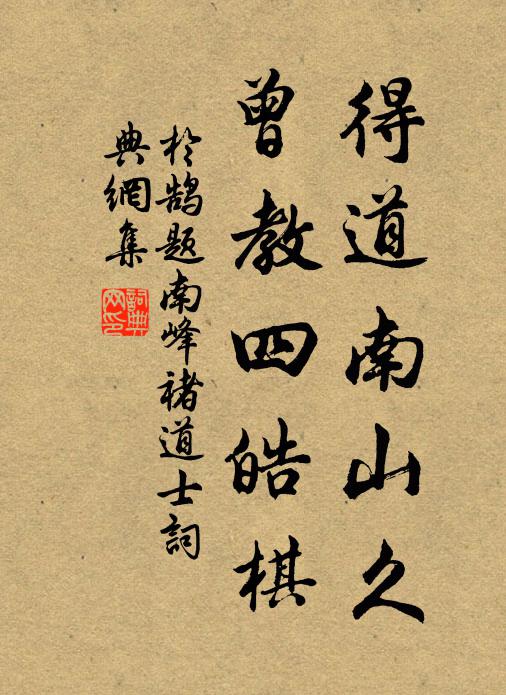 得道南山久
曾教四皓棋
於鵠題南峰褚道士詞
典網集
詞典
網印